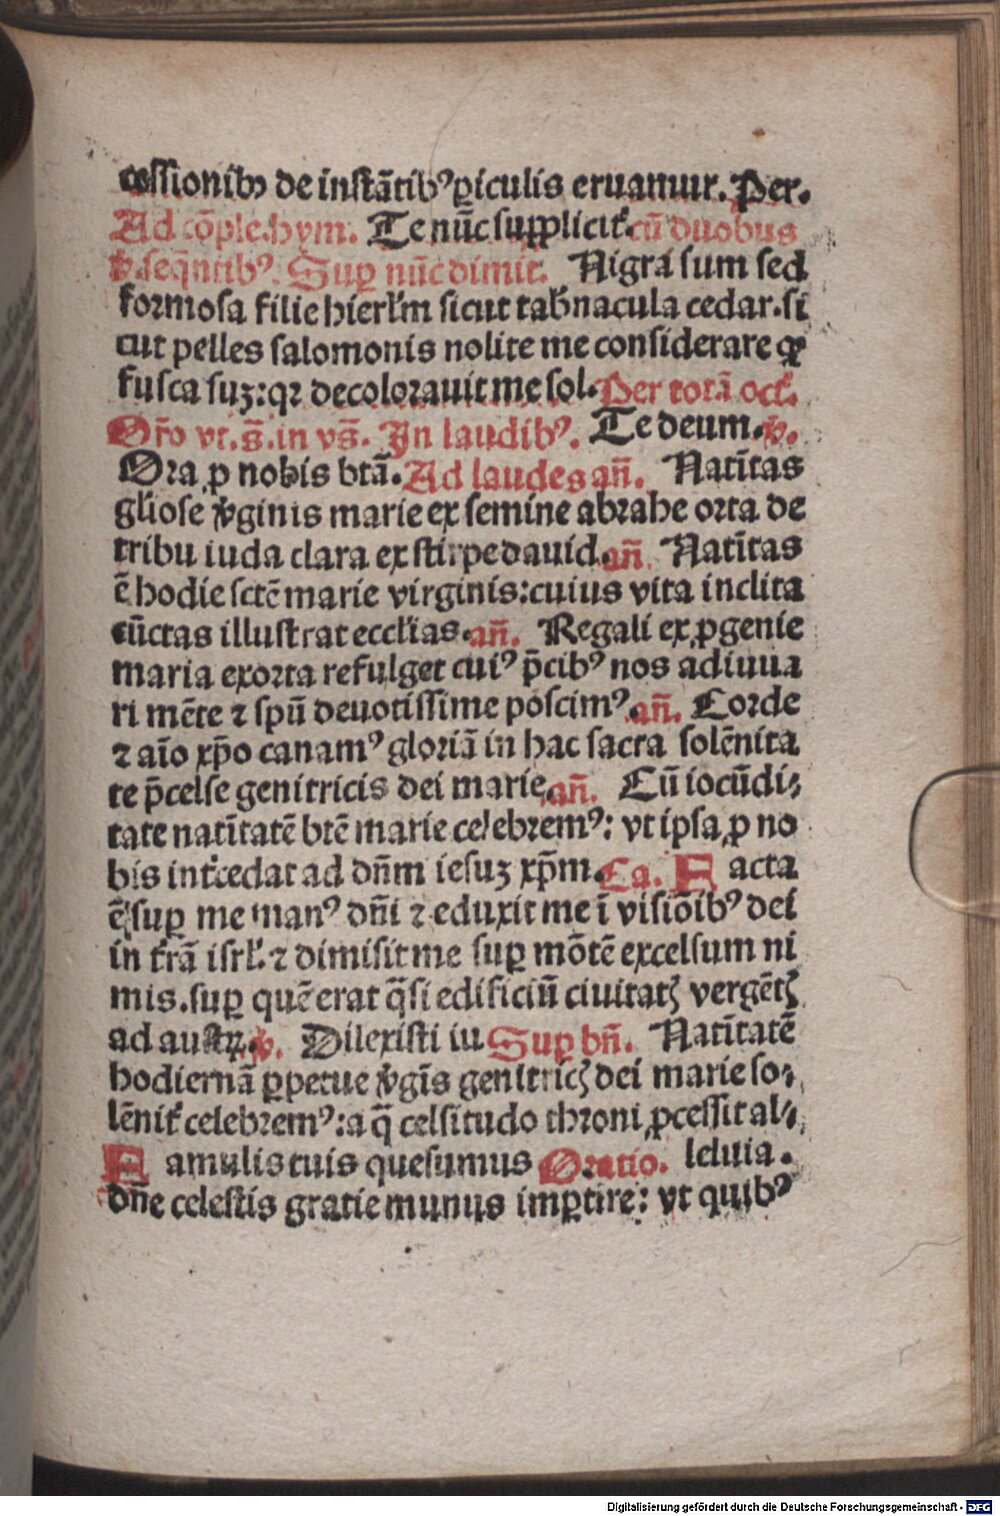 cessionibꝫ de instātibꝰ ꝑiculis eruamur. Per.
Ad cōple. hym. Te nūc supplicit᷑. cū duobus
v̄. seq̄ntibꝰ. Suꝑ nūc dimit. Nigra sum sed
formosa filie hierl̄m sicut tab̄nacula cedar. si
cut pelles salomonis nolite me considerare ꝙ
fusca suꝫ: qꝛ decolorauit me sol. Per totā oct̄.
Or̄o vt. s̄. in vs̄. In laudibꝰ. Te deum. v̄.
Ora ꝓ nobis btā. Ad laudes an̄. Natīitas
gl̄iose v̄ginis marie ex semine abrahe orta de
tribu iuda clara ex stirpe dauid. an̄. Natīitas
ē hodie sctē marie virginis: cuius vita inclita
cūctas illustrat eccl̄ias. an̄. Regali ex ꝓgenie
maria exorta refulget cuiꝰ p̄cibꝰ nos adiuua
ri mēte ⁊ spū deuotissime poscimꝰ. an̄. Corde
⁊ aīo xp̄o canamꝰ gloriā in hac sacra solēnita
te p̄celse genitricis dei marie. an̄. Cū iocūdi⸗
tate natīitatē btē marie celebremꝰ: vt ipsa ꝓ no
bis int̄cedat ad dn̄m iesuꝫ xp̄m. Ca. Facta
ē suꝑ me manꝰ dn̄i ⁊ eduxit me ī visiōibꝰ dei
in t̄rā isrl̄. ⁊ dimisit me suꝑ mōtē excelsum ni
mis. suꝑ quē erat q̄si edificiū ciuitatꝭ vergētꝭ
ad austꝝ. v̄. Dilexisti iu Suꝑ bn̄. Natīitatē
hodiernā ꝑpetue v̄gīs genitricꝭ dei marie so⸗
lēnit᷑ celebremꝰ: a q̄ celsitudo throni ꝓcessit al⸗
Famulis tuis quesumus Oratio. leluia.
dn̄e celestis gratie munus imꝑtire: vt quibꝰ
Digitalisierung gefördert durch die Deutsche Forschungsgemeinschaft - DFG